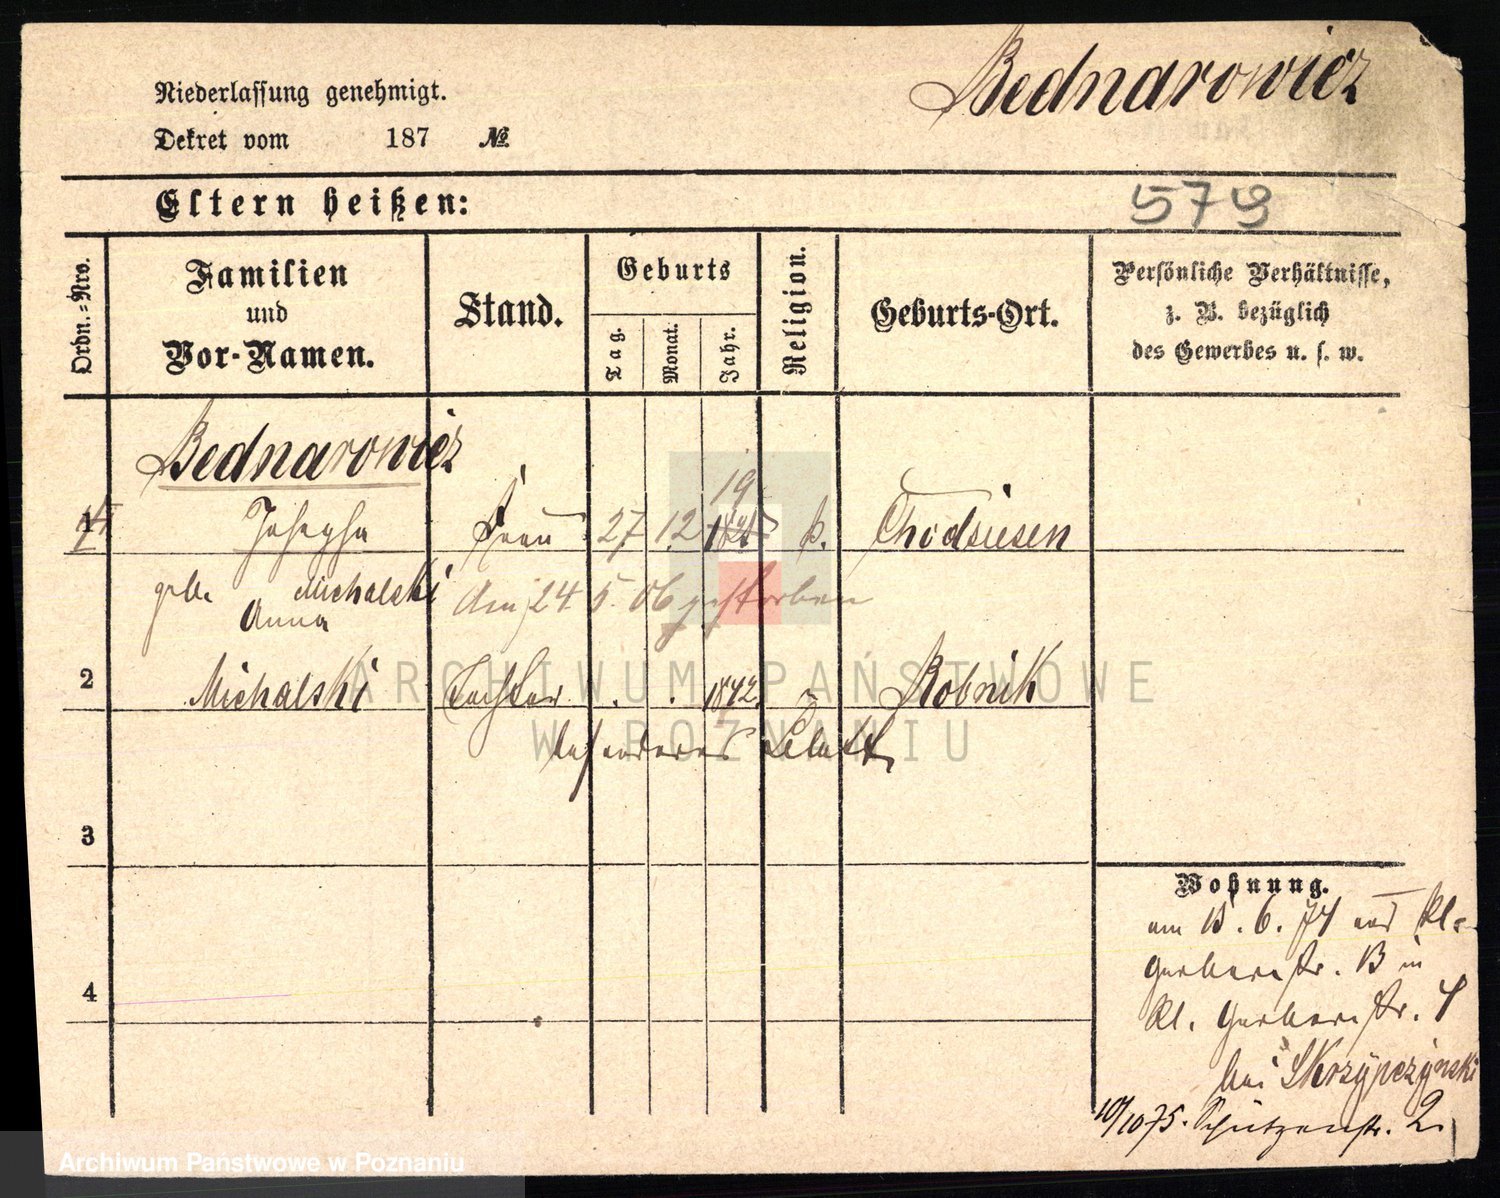 Bednarowicz
Niederlassung genehmigt.
Dekret vom 187 №
Eltern heißen:
579
Ordn.-Nro.
Familien
und
Vor-Namen.
Stand.
Geburts
Tag.
Monat.
Jahr.
Religion.
Geburts-Ort.
Persönliche Verhältnisse,
z. B. bezüglich
des Gewerbes u. s. w.
Bednarowicz
19
1 Josepha Frau 27 12 k. Chodziesen
geb. Michalski Am 24 5. 06 gestorben
Anna
2 Michalski Tochter . . 1842. Robnik
besonderes Blatt
3
4
Wohnung.
am 13. 6. 74 aus Kl.
Gerberstr. 13 in
Kl. Gerberstr. 4
bei Skrzypczynski
10/10 75. Schützenstr. 2.
ARCHIWUM PAŃSTWOWE
W POZNANIU
Archiwum Państwowe w Poznaniu